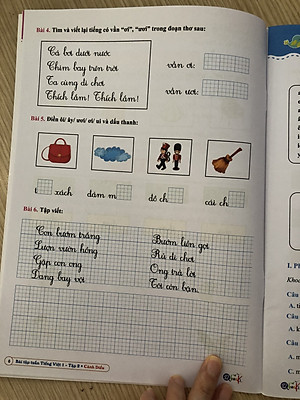 Bài 4. Tìm và viết lại tiếng có vần "ơi", "ươi" trong đoạn thơ sau:
Cá bơi dưới nước
Chim bay trên trời
Ta cùng đi chơi
Thích lắm! Thích lắm!
vần ơi:
vần ươi:
Bài 5. Điền ôi/ ây/ ươi/ ơi/ ui và dấu thanh:
t xách
đám m
đồ ch
cái ch
Bài 6. Tập viết:
Con bướm trắng
Lượn vườn hồng
Gặp con ong
Đang bay vội
Bướm liền gọi
Rủ đi chơi
Ong trả lời
Tôi còn bận.
6 Bài tập tuần Tiếng Việt 1 - Tập 2 • Cánh Diều